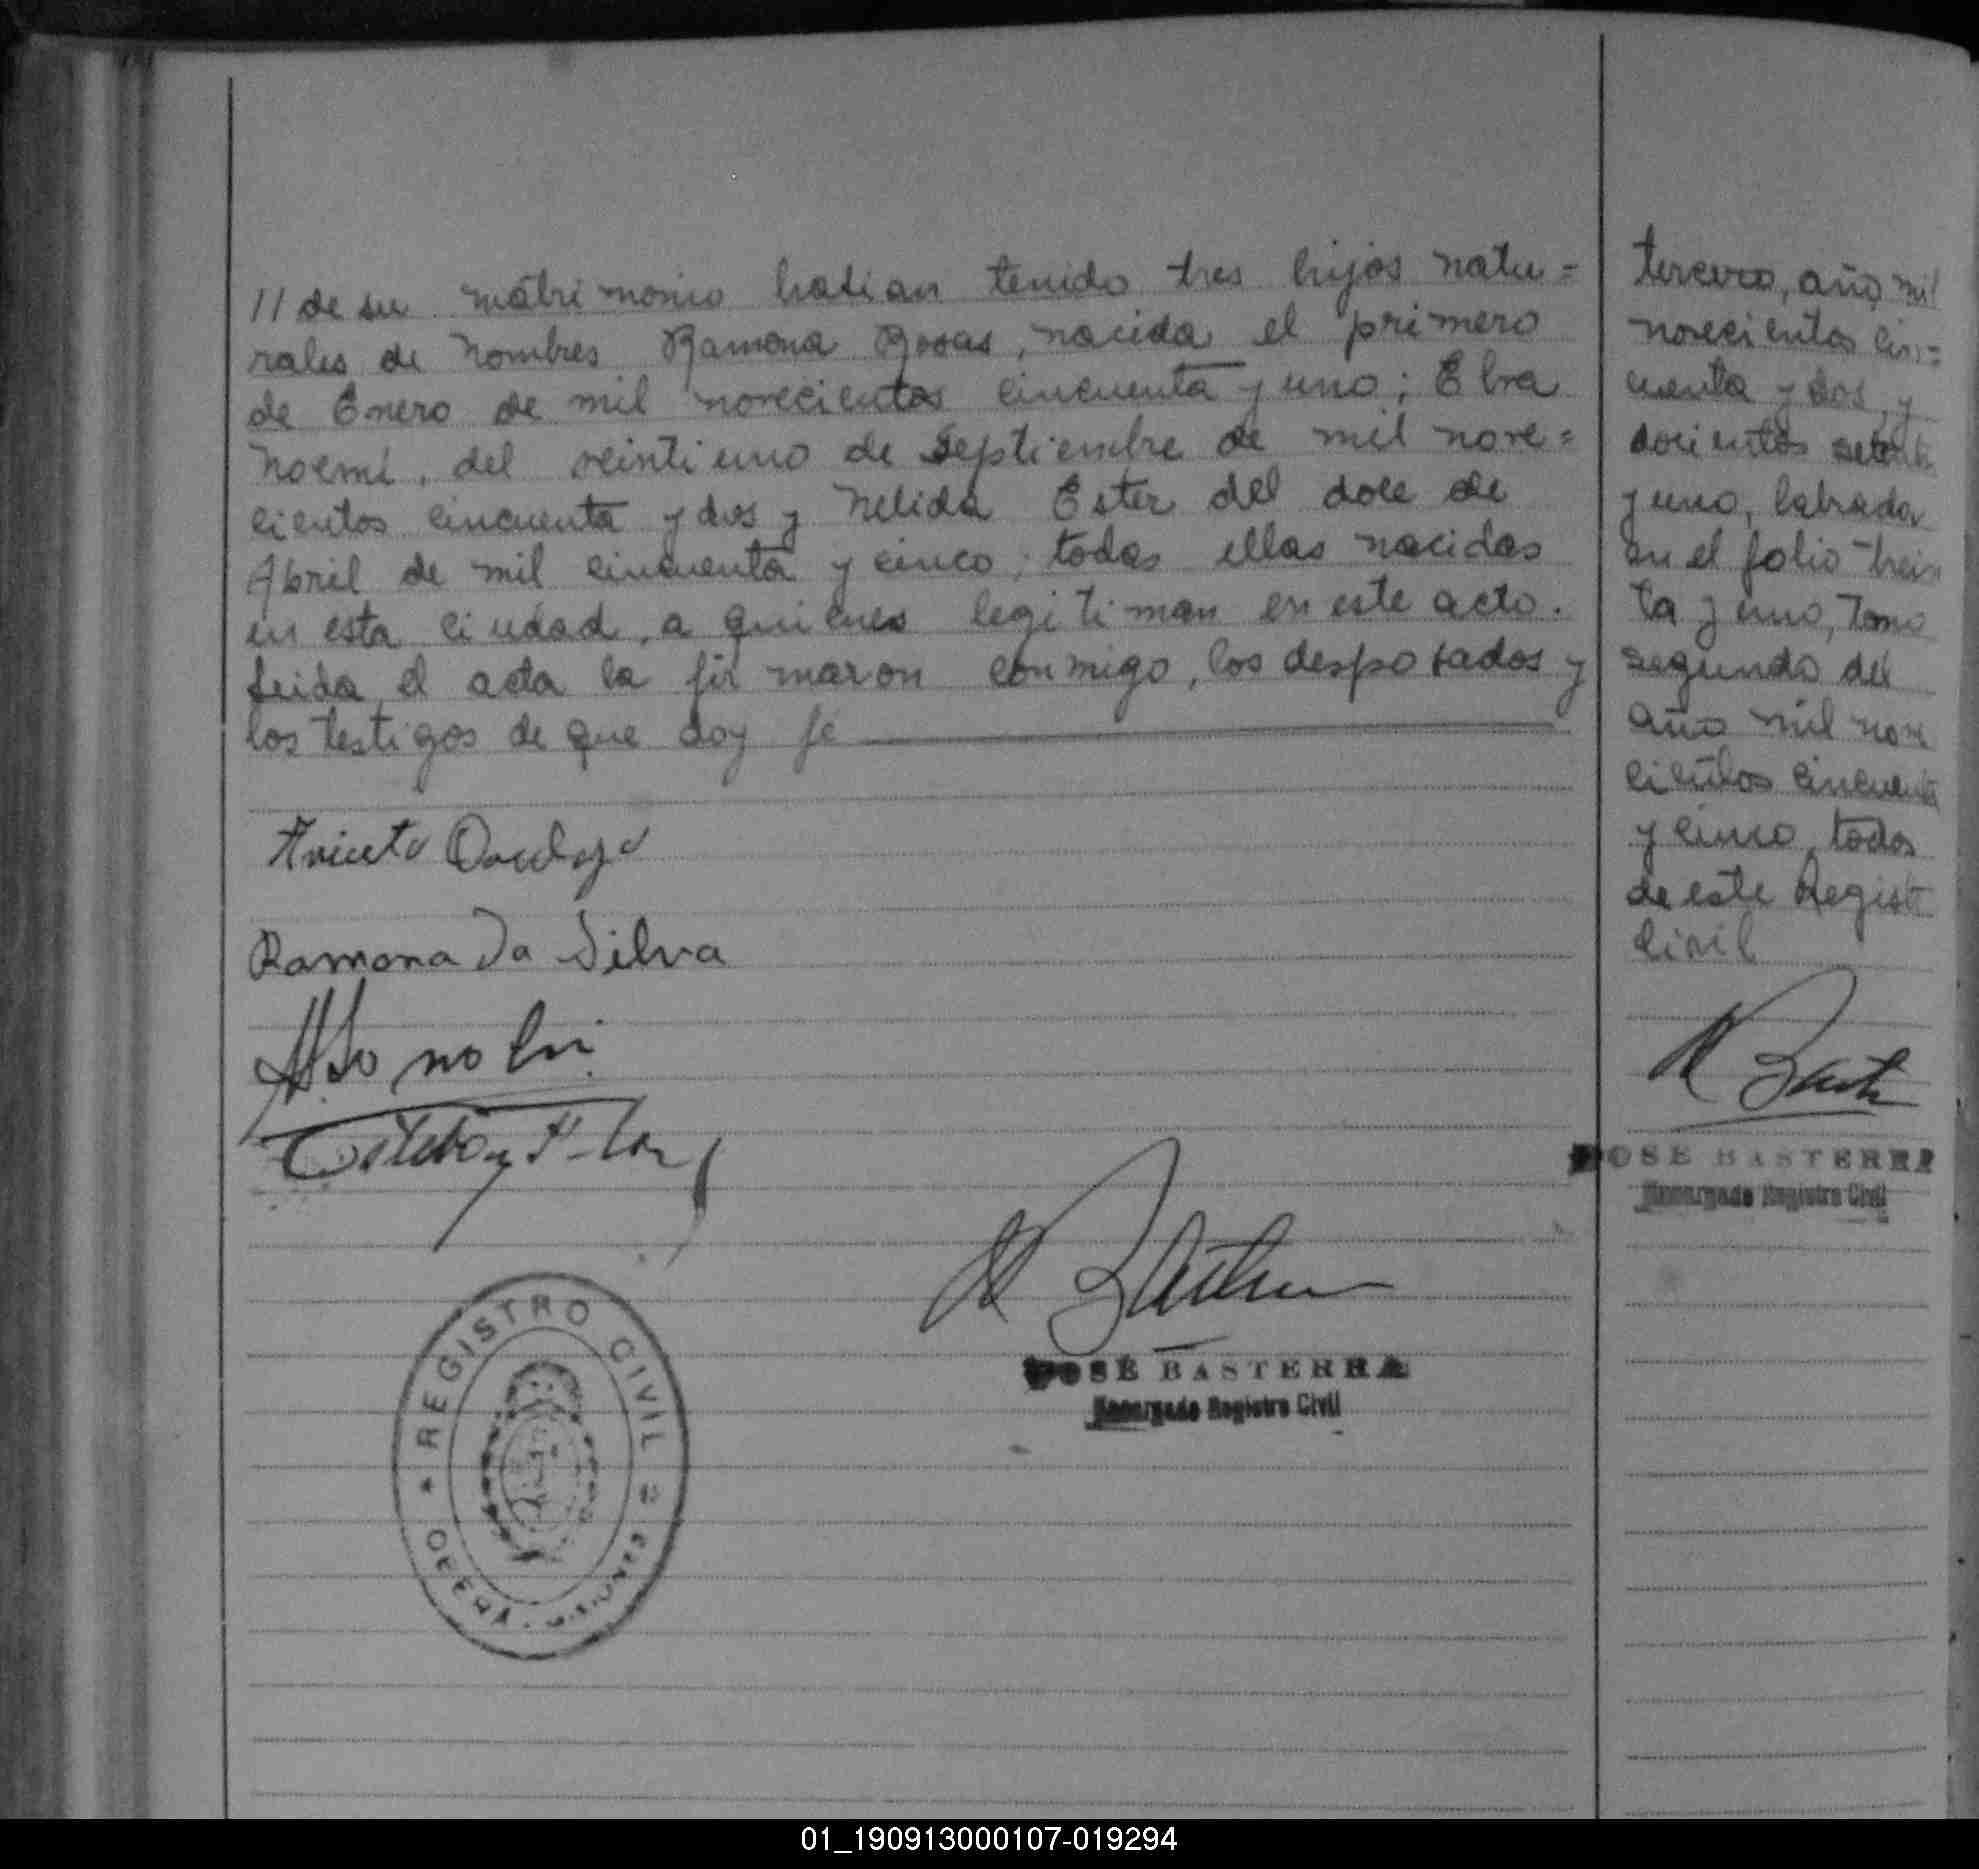 // de su matrimonio habian tenido tres hijos natu=
rales de nombres Ramona Rosas, nacida el primero
de Enero de mil novecientos cincuenta y uno; Elva
Noemi, del veintiuno de Septiembre de mil nove=
cientos cincuenta y dos y Nelida Ester del doce de
Abril de mil cincuenta y cinco, todas ellas nacidas
en esta ciudad, a quienes legitiman en este acto.
Leida el acta la firmaron conmigo, los desposados y
los testigos de que doy fé
Ramona Da Silva
JOSÉ BASTERRA
Encargado Registro Civil
REGISTRO CIVIL
OBERÁ - MISIONES
tercero, año mil
novecientos cin=
cuenta y dos, y
docientos setenta
y uno, labrada
en el folio trein
ta y uno, Tomo
segundo del
año mil nove
cientos cincuenta
y cinco, todos
de este Regist
Civil
JOSÉ BASTERRA
Encargado Registro Civil
01_190913000107-019294